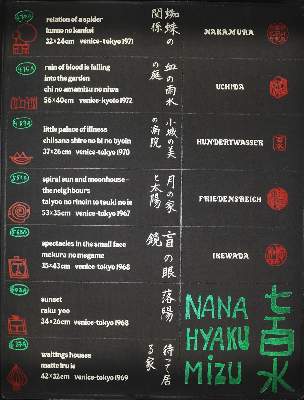 relation of a spider
kumo no kankei
32×24cm venice-tokyo 1971
蜘蛛の
関係
NAKAMURA
rain of blood is falling
into the garden
chi no amamizu no niwa
56×40cm venice-kyoto 1972
血の雨水
の庭
UCHIDA
little palace of illness
chiisana shiro no bi no byoin
37×26cm venice-tokyo 1970
小城の美
の病院
HUNDERTWASSER
spiral sun and moonhouse -
the neighbours
taiyoo no rinoin to tsuki no ie
53×35cm venice-tokyo 1967
月の家
と太陽
FRIEDENSREICH
spectacles in the small face
mekura no megane
venice-tokyo 1968
盲の眼
鏡
IKEWADA
sunset
raku yoo
34×26cm venice-tokyo 1968
落陽
waitings houses
matte iru ie
42×32cm venice-tokyo 1969
待って居
る家
NANA
HYAKU
MIZU
七百水